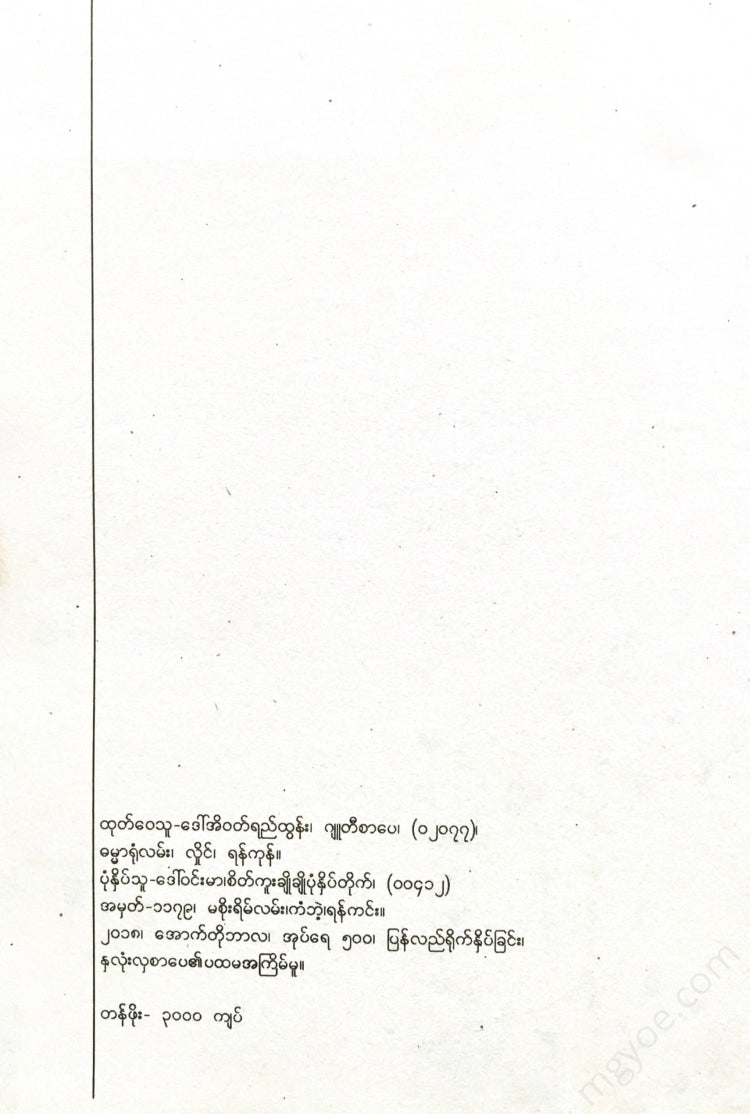 ထုတ်ဝေသူ-ဒေါ်အိဝတ်ရည်ထွန်း၊ ဂျူတီစာပေ၊ (၀၂၀၇၇)၊
ဓမ္မာရုံလမ်း၊ လှိုင်၊ ရန်ကုန်။
ပုံနှိပ်သူ-ဒေါ်ဝင်းမာ၊စိတ်ကူးချိုချိုပုံနှိပ်တိုက်၊ (၀၀၄၁၂)
အမှတ်-၁၁၇၉၊ မစိုးရိမ်လမ်း၊ကံဘဲ့၊ရန်ကင်း။
၂၀၁၈၊ အောက်တိုဘာလ၊ အုပ်ရေ ၅၀၀၊ ပြန်လည်ရိုက်နှိပ်ခြင်း၊
နှလုံးလှစာပေ၏ပထမအကြိမ်မူ။
တန်ဖိုး- ၃၀၀၀ ကျပ်
mgyoe.com